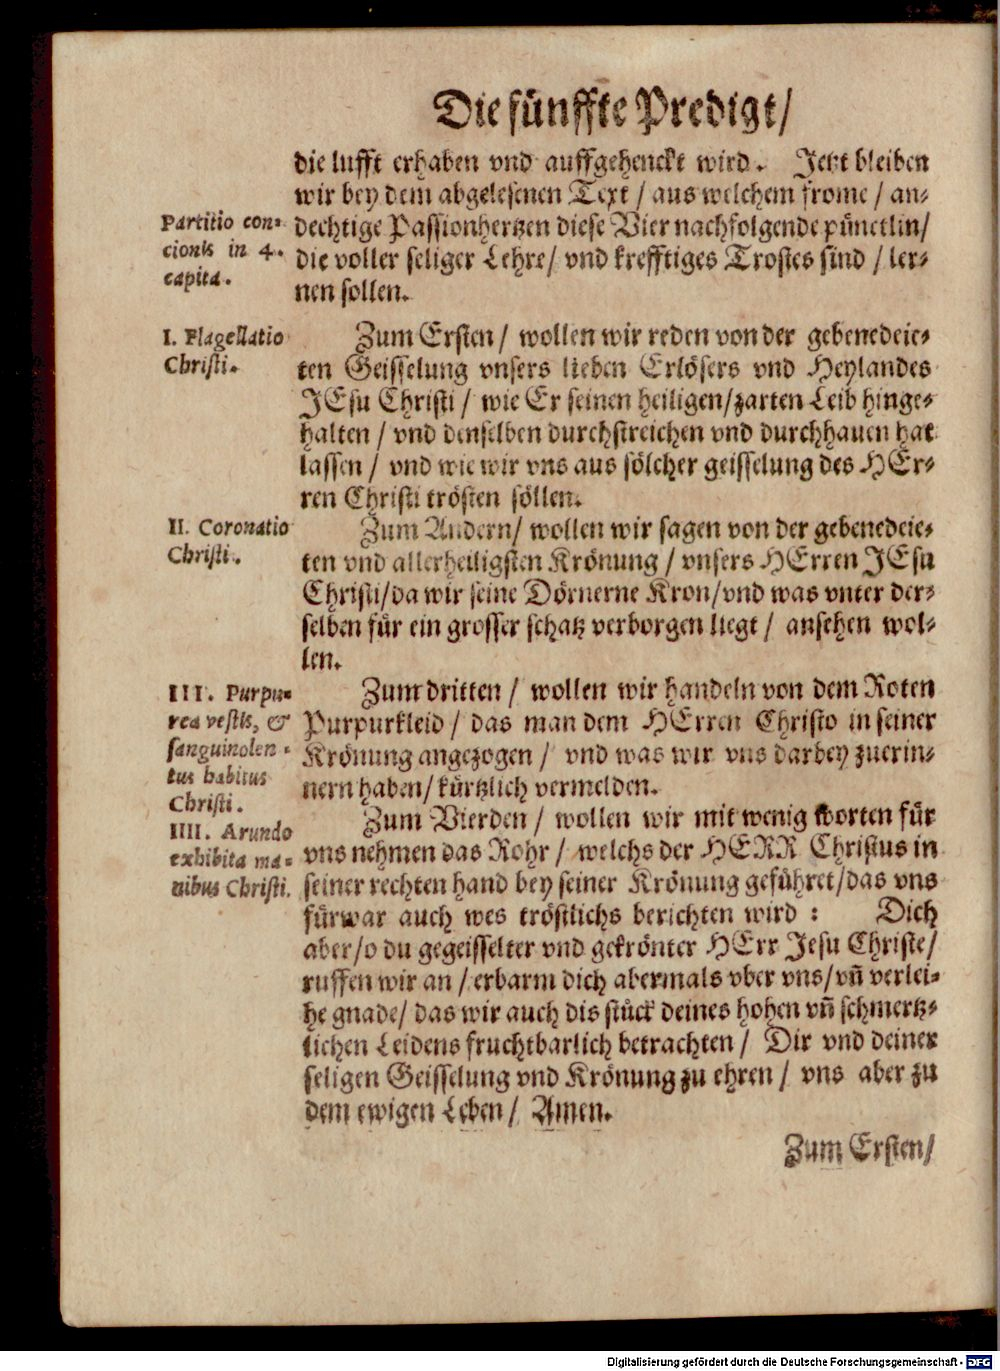 Die fünffte Predigt/
die lufft erhaben vnd auffgehenckt wird. Jetzt bleiben
wir bey dem abgelesenen Text / aus welchem frome / an-
dechtige Passionhertzen diese Vier nachfolgende pünctlin/
die voller seliger Lehre/ vnd krefftiges Trostes sind / ler-
nen sollen.
Partitio con-
cionis in 4.
capita.
Zum Ersten / wollen wir reden von der gebenedeie-
ten Geisselung vnsers lieben Erlösers vnd Heylandes
JEsu Christi / wie Er seinen heiligen/zarten Leib hinge-
halten / vnd denselben durchstreichen vnd durchhauen hat
lassen / vnd wie wir vns aus sölcher geisselung des HEr-
ren Christi trösten söllen.
I. Flagellatio
Christi.
Zum Andern/ wollen wir sagen von der gebenedeie-
ten vnd allerheiligsten Krönung / vnsers HErren JEsu
Christi/da wir seine Dörnerne Kron/vnd was vnter der-
selben für ein grosser schatz verborgen liegt / ansehen wol-
len.
II. Coronatio
Christi.
Zum dritten / wollen wir handeln von dem Roten
Purpurkleid / das man dem HErren Christo in seiner
Krönung angezogen / vnd was wir vns darbey zuerin-
nern haben/ kürtzlich vermelden.
III. Purpu-
rea vestis, &
sanguinolen-
tus habitus
Christi.
Zum Vierden / wollen wir mit wenig worten für
vns nehmen das Rohr / welchs der HERR Christus in
seiner rechten hand bey seiner Krönung geführet/das vns
fürwar auch wes tröstlichs berichten wird : Dich
aber/o du gegeisselter vnd gekrönter HErr Jesu Christe/
ruffen wir an / erbarm dich abermals vber vns/vn̄ verlei-
he gnade/ das wir auch dis stück deines hohen vn̄ schmertz-
lichen Leidens fruchtbarlich betrachten / Dir vnd deiner
seligen Geisselung vnd Krönung zu ehren / vns aber zu
dem ewigen Leben / Amen.
IIII. Arundo
exhibita ma-
nibus Christi.
Zum Ersten/
Digitalisierung gefördert durch die Deutsche Forschungsgemeinschaft - DFG